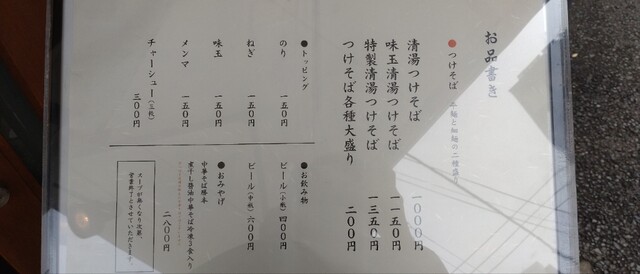 お品書き
●つけそば 平麺と細麺の二種盛り
清湯つけそば 一〇〇〇円
味玉清湯つけそば 一一五〇円
特製清湯つけそば 一三五〇円
つけそば各種大盛り 二〇〇円
●トッピング
のり 一五〇円
ねぎ 一五〇円
味玉 一五〇円
メンマ 一五〇円
チャーシュー(三枚) 三〇〇円
●お飲み物
ビール(小瓶) 四〇〇円
ビール(中瓶) 六〇〇円
●おみやげ
中華そば勝本
煮干し醤油中華そば冷凍3食入り
二八〇〇円
スープが無くなり次第、
営業終了とさせていただきます。